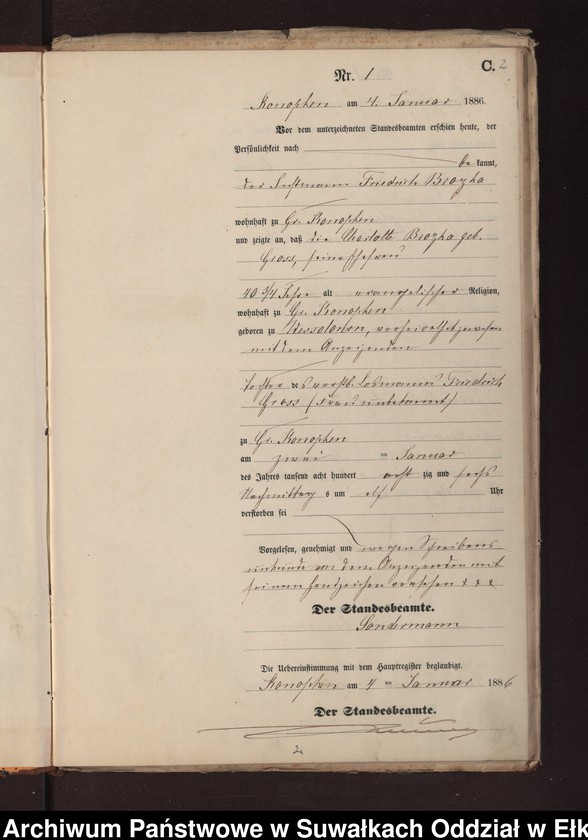 C. 2
Nr. 1
Konopken am 4. Januar 1886.
Vor dem unterzeichneten Standesbeamten erschien heute, der
Persönlichkeit nach
be kannt,
der Instmann Friedrich Brozka
wohnhaft zu Gr. Konopken
und zeigte an, daß die Charlotte Brozka geb.
Gross, seine Ehefrau
40 3/4 Jahre alt evangelischer Religion,
wohnhaft zu Gr. Konopken
geboren zu verheirathet gewesen
mit dem Anzeigenden
Tochter des verstb. Losmanns Friedrich
Gross (Frau unbekannt)
zu Gr. Konopken
am zwei ten Januar
des Jahres tausend acht hundert acht zig und sechs
Nachmittag s um elf Uhr
verstorben sei
Vorgelesen, genehmigt und wegen Schreibens
unkunde von dem Anzeigenden mit
seinem Handzeichen versehen x x x
Der Standesbeamte.
Sondermann
Die Uebereinstimmung mit dem Hauptregister beglaubigt.
Konopken am 4 ten Januar 1886
Der Standesbeamte.
2
Archiwum Państwowe w Suwałkach Oddział w Ełk